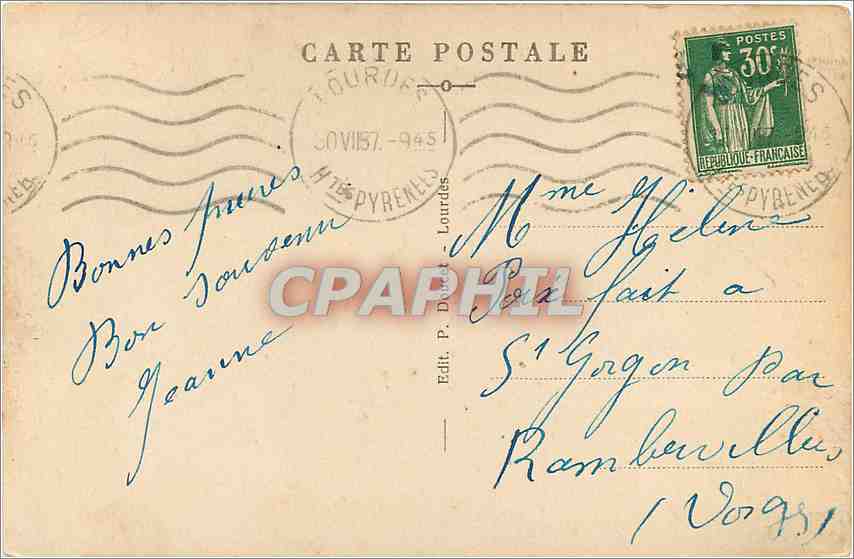 CARTE POSTALE
LOURDES
30 VII 37. - 9 45
Htes PYRENEES
POSTES
30c
REPUBLIQUE-FRANÇAISE
Bonnes prières
Bon souvenir
Jeanne
Edit. P. Doucet - Lourdes
CPAPHIL
Mme Hélène
fait a
St Gorgon par
Rambervillers
(Vosges)